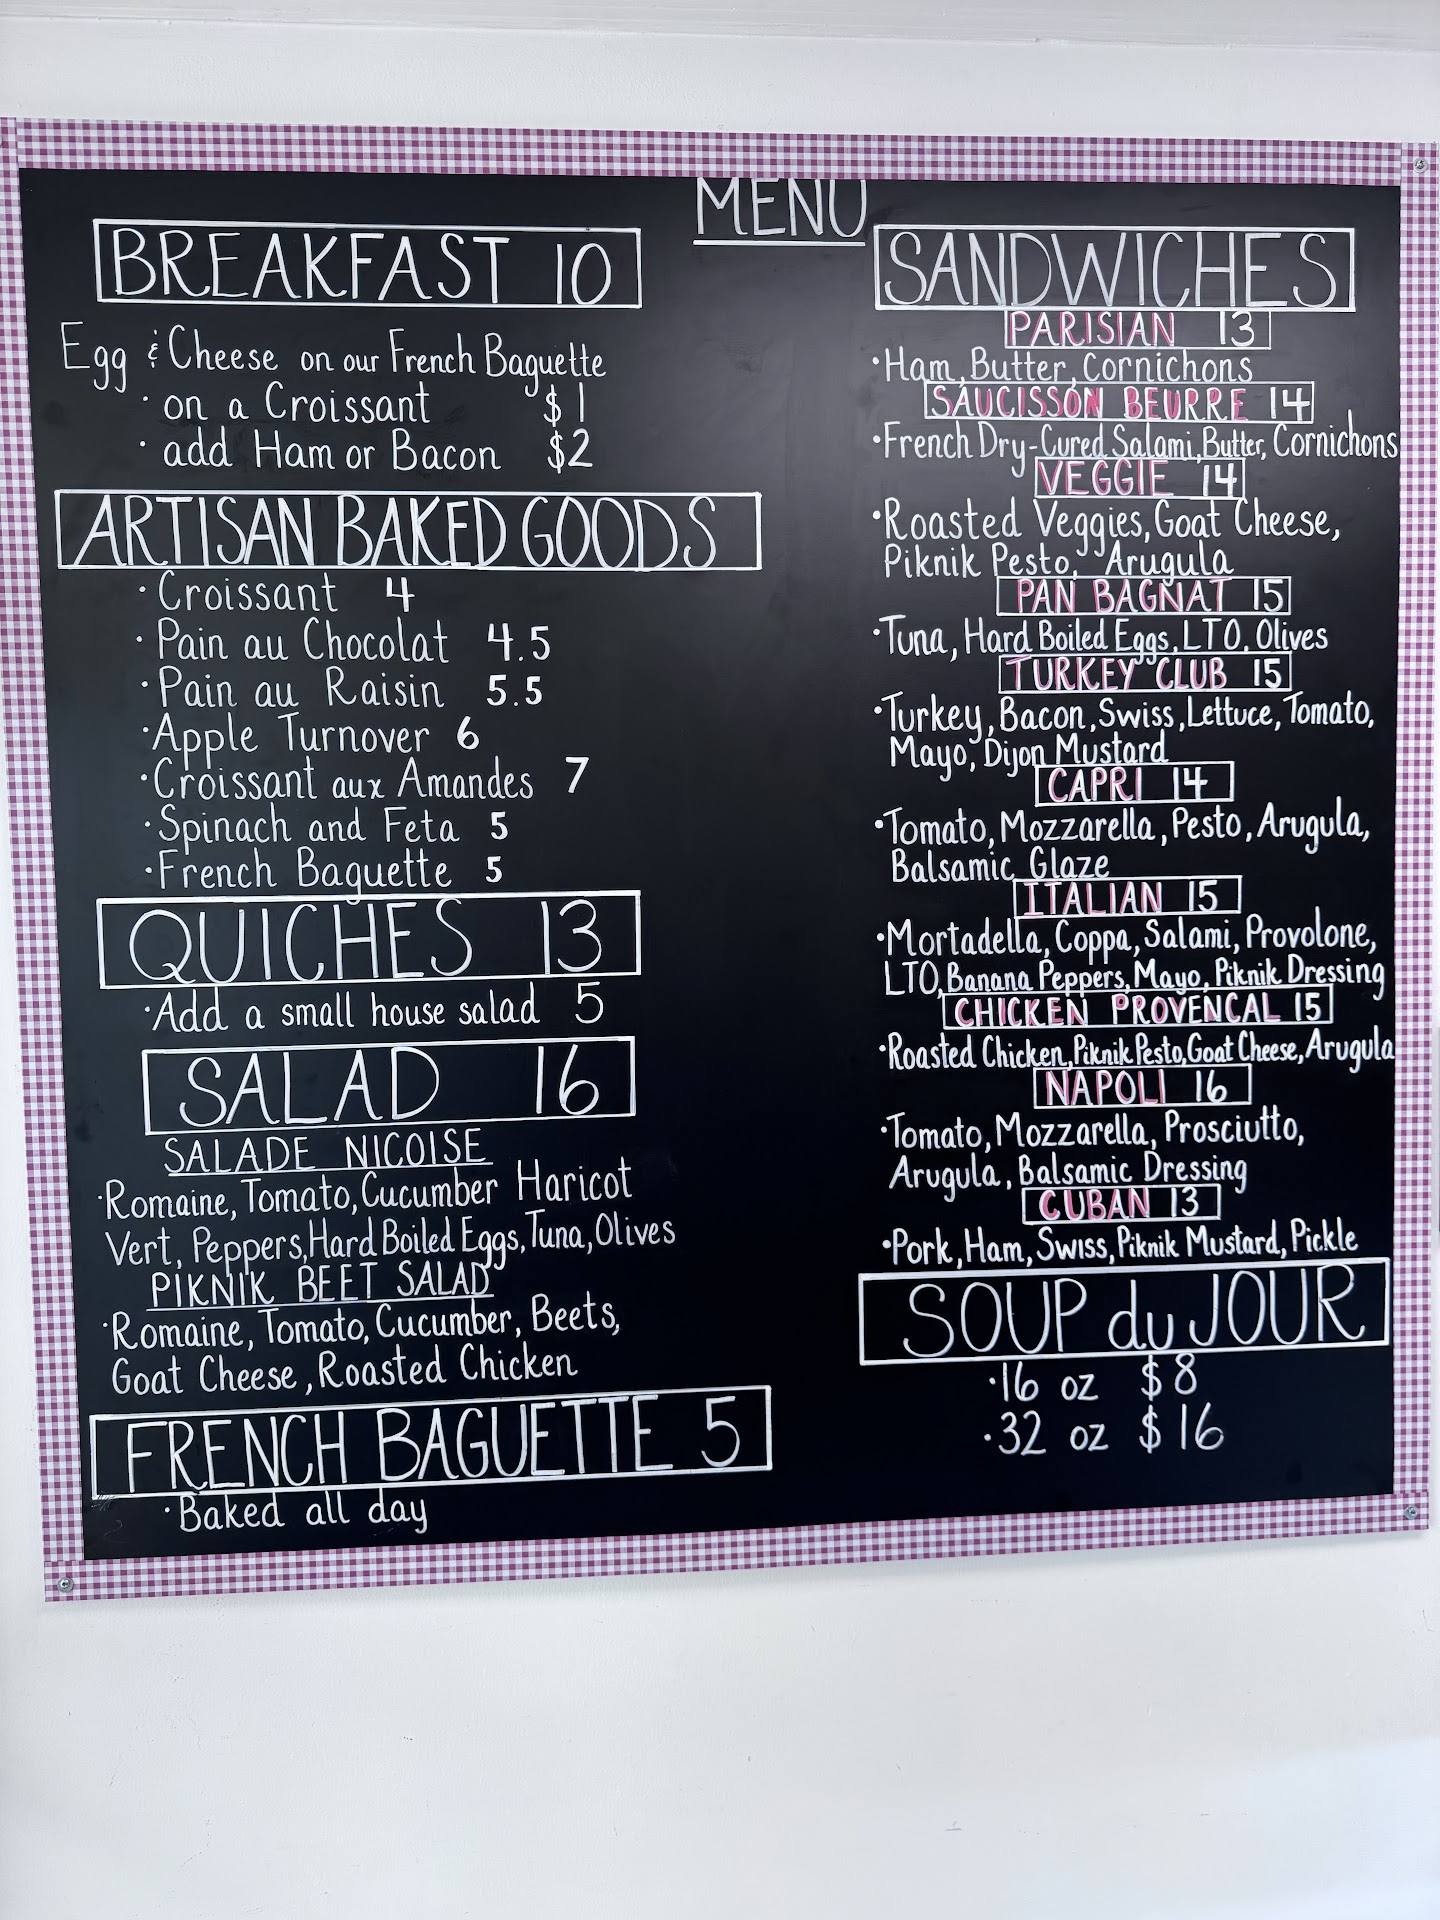 MENU
BREAKFAST 10
Egg & Cheese on our French Baguette
· on a Croissant $1
· add Ham or Bacon $2
ARTISAN BAKED GOODS
· Croissant 4
· Pain au Chocolat 4.5
· Pain au Raisin 5.5
· Apple Turnover 6
· Croissant aux Amandes 7
· Spinach and Feta 5
· French Baguette 5
QUICHES 13
· Add a small house salad 5
SALAD 16
SALADE NICOISE
· Romaine, Tomato, Cucumber Haricot
Vert, Peppers, Hard Boiled Eggs, Tuna, Olives
PIKNIK BEET SALAD
· Romaine, Tomato, Cucumber, Beets,
Goat Cheese, Roasted Chicken
FRENCH BAGUETTE 5
· Baked all day
SANDWICHES
PARISIAN 13
· Ham, Butter, Cornichons
SAUCISSON BEURRE 14
· French Dry-Cured Salami, Butter, Cornichons
VEGGIE 14
· Roasted Veggies, Goat Cheese,
Piknik Pesto, Arugula
PAN BAGNAT 15
· Tuna, Hard Boiled Eggs, LTO, Olives
TURKEY CLUB 15
· Turkey, Bacon, Swiss, Lettuce, Tomato,
Mayo, Dijon Mustard
CAPRI 14
· Tomato, Mozzarella, Pesto, Arugula,
Balsamic Glaze
ITALIAN 15
· Mortadella, Coppa, Salami, Provolone,
LTO, Banana Peppers, Mayo, Piknik Dressing
CHICKEN PROVENCAL 15
· Roasted Chicken, Piknik Pesto, Goat Cheese, Arugula
NAPOLI 16
· Tomato, Mozzarella, Prosciutto,
Arugula, Balsamic Dressing
CUBAN 13
· Pork, Ham, Swiss, Piknik Mustard, Pickle
SOUP du JOUR
· 16 oz $8
· 32 oz $16